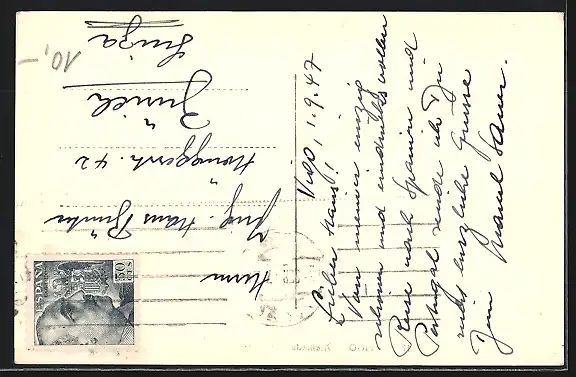 Vigo, 1.9.47
Lieber Hans!
Von meiner einzig
schönen und eindrucksvollen
Reise nach Spanien und
Portugal sende ich Dir
recht herzliche Grüsse
Dein
Marcel Saner.
Herrn
Ing. Hans
42
Zürich
Suiza
10,-
ESPAÑA
50
CTS